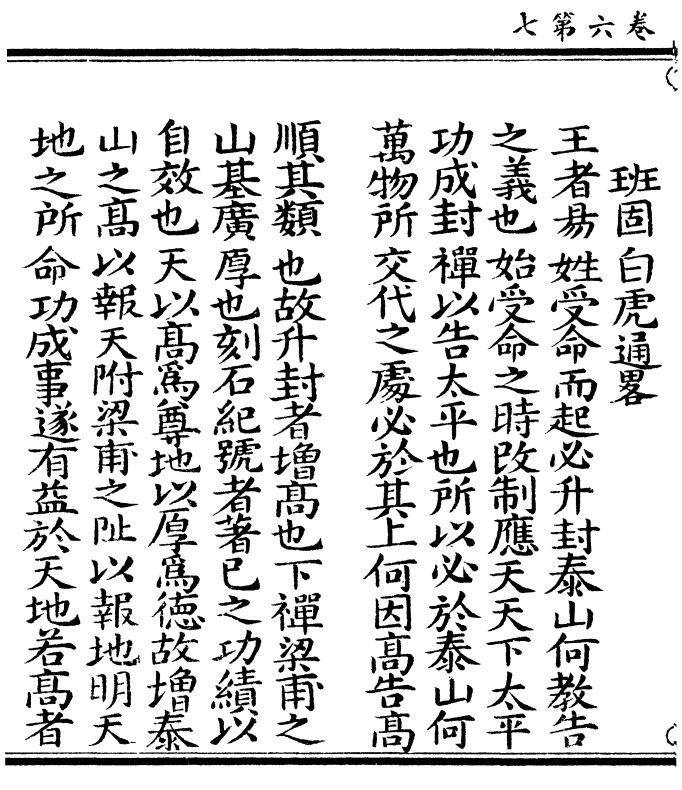 卷六第七
班固白虎通畧
王者易姓受命而起必升封泰山何教告
之義也始受命之時改制應天天下太平
功成封禪以告太平也所以必於泰山何
萬物所交代之處必於其上何因高告高
順其類也故升封者增高也下禪梁甫之
山基廣厚也刻石紀號者著已之功績以
自效也天以高爲尊地以厚爲德故增泰
山之高以報天附梁甫之阯以報地明天
地之所命功成事遂有益於天地若高者